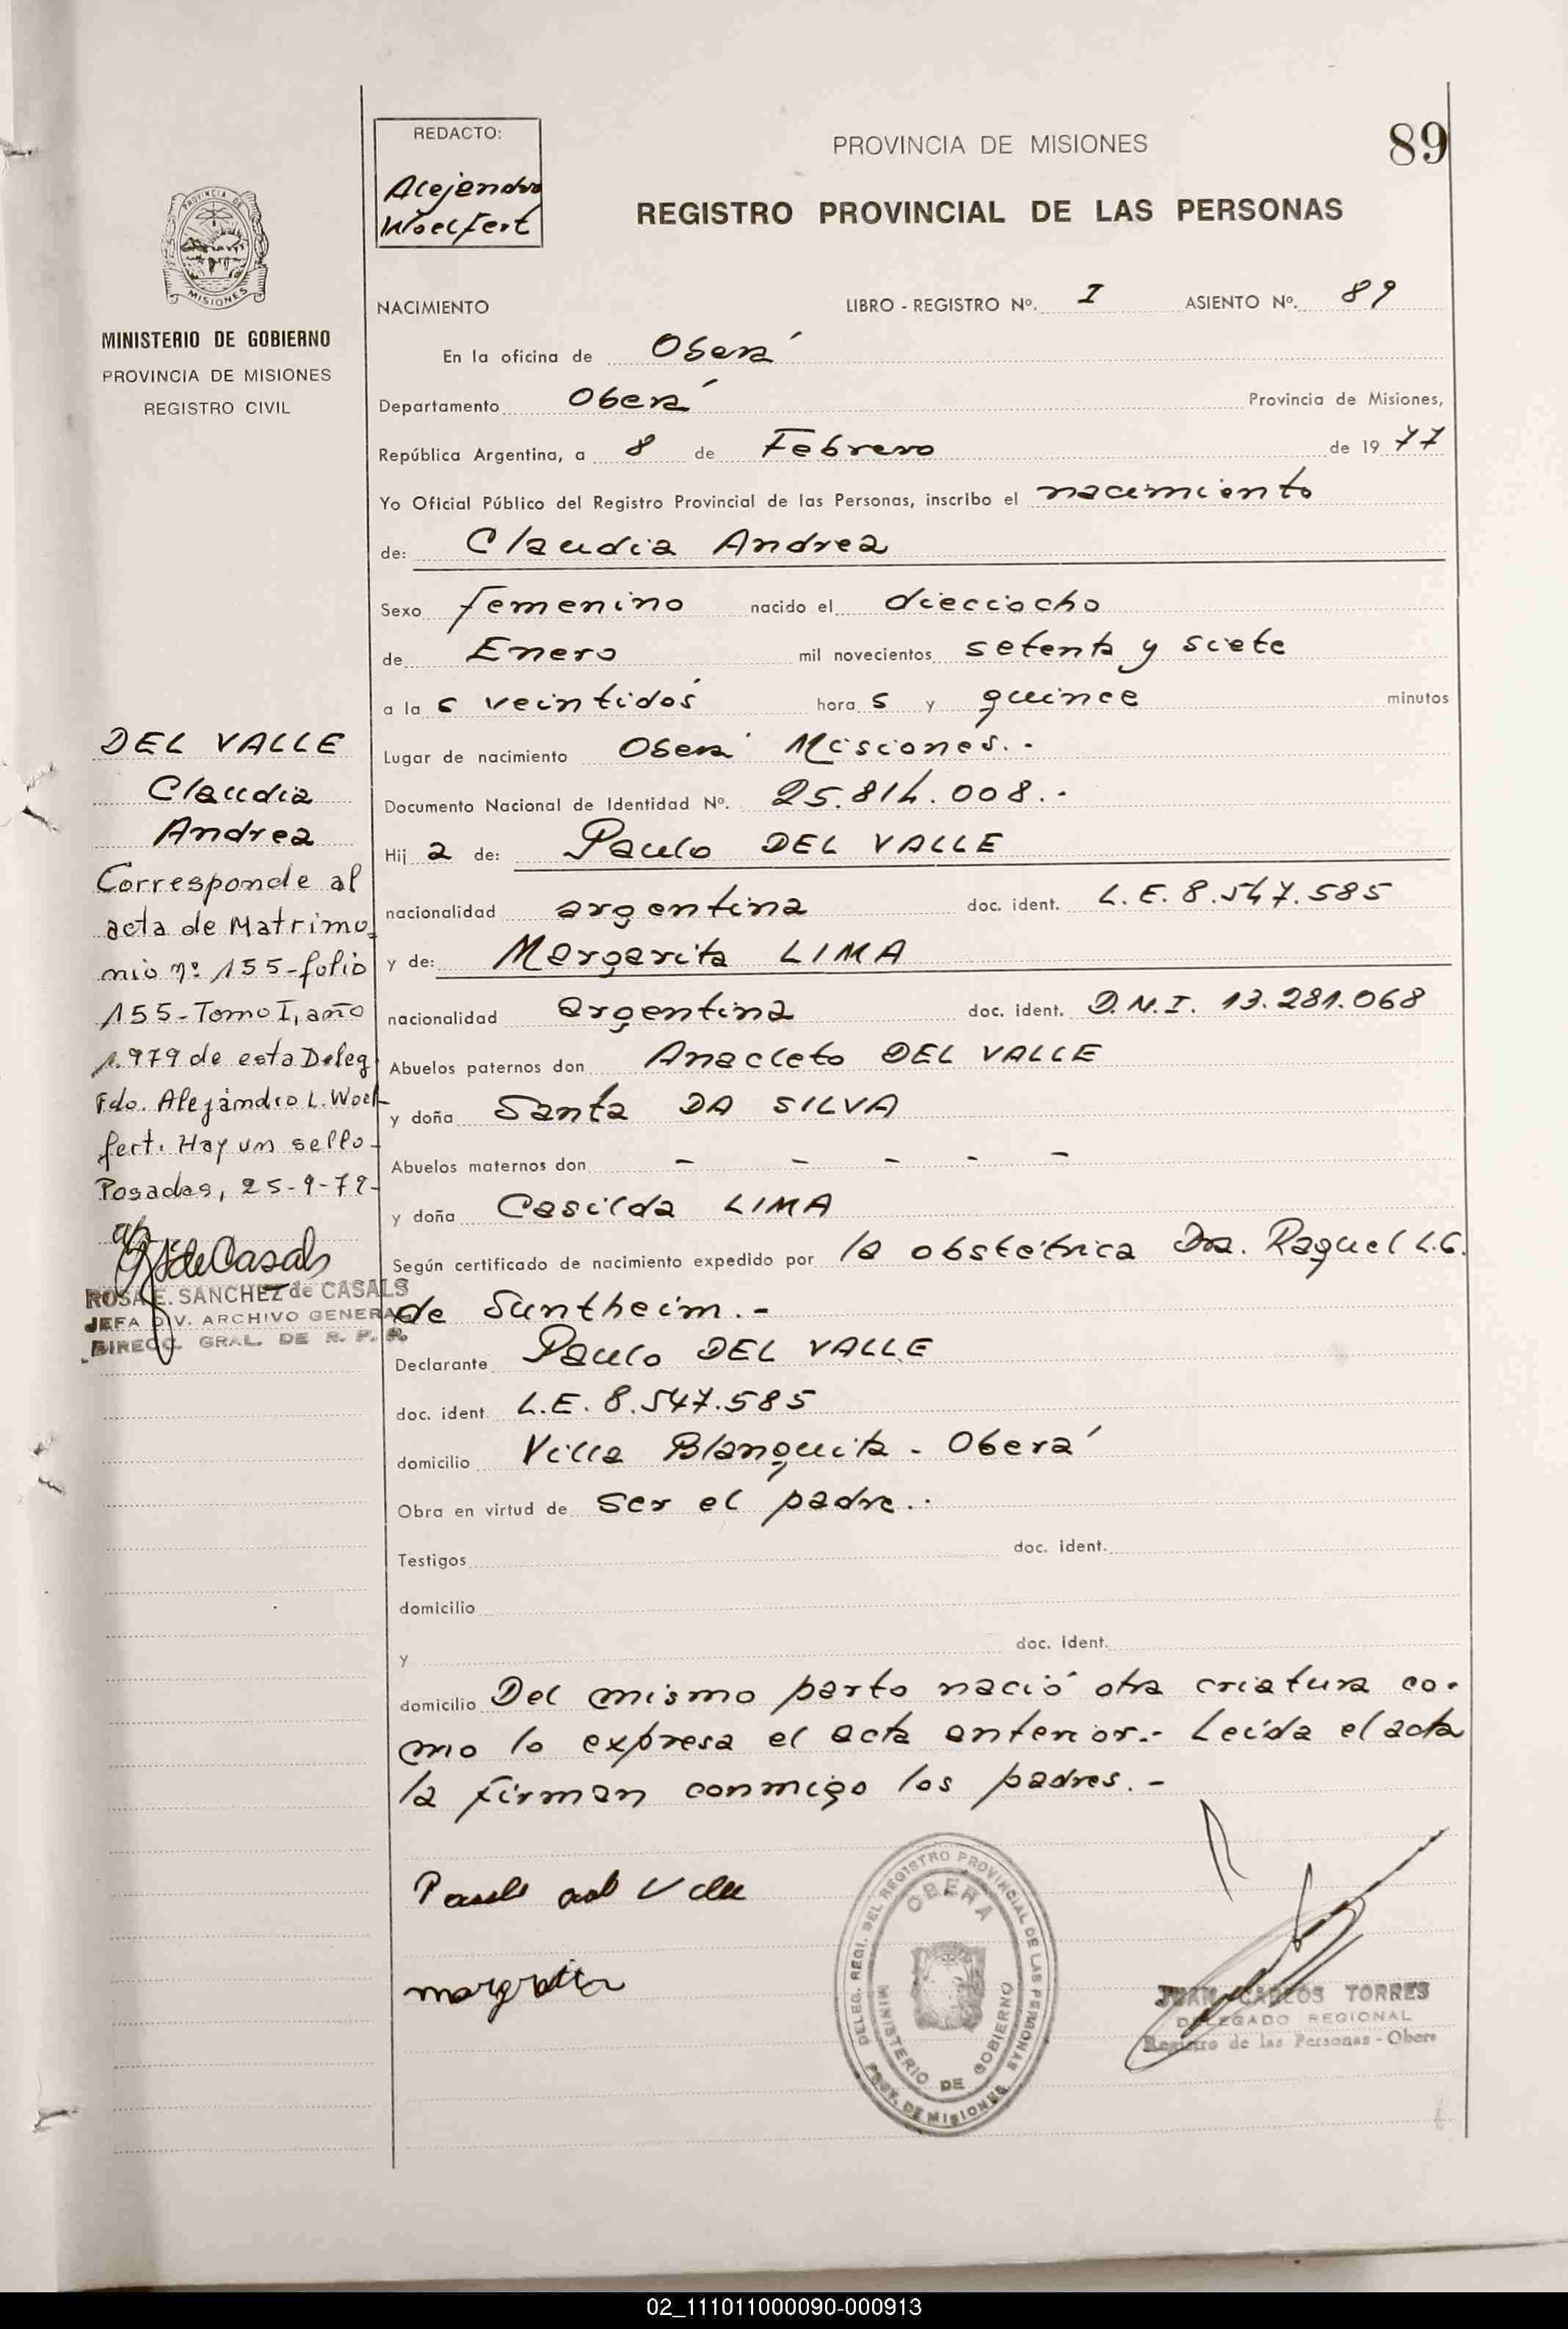 REDACTO:
Alejandro
Woelfert
PROVINCIA DE MISIONES
89
REGISTRO PROVINCIAL DE LAS PERSONAS
PROVINCIA DE
MISIONES
MINISTERIO DE GOBIERNO
PROVINCIA DE MISIONES
REGISTRO CIVIL
NACIMIENTO LIBRO - REGISTRO Nº. I ASIENTO Nº. 89
En la oficina de Oberá
Departamento Oberá Provincia de Misiones,
República Argentina, a 8 de Febrero de 19 77
Yo Oficial Público del Registro Provincial de las Personas, inscribo el nacimiento
de: Claudia Andrea
Sexo femenino nacido el dieciocho
de Enero mil novecientos setenta y siete
a la s veintidós hora s y quince minutos
Lugar de nacimiento Oberá Misiones.-
Documento Nacional de Identidad Nº. 25.814.008.-
Hij a de: Paulo DEL VALLE
nacionalidad argentina doc. ident. L.E. 8.547.585
y de: Margarita LIMA
nacionalidad argentina doc. ident. D.N.I. 13.281.068
Abuelos paternos don Anacleto DEL VALLE
y doña Santa DA SILVA
Abuelos maternos don - - - - -
y doña Casilda LIMA
Según certificado de nacimiento expedido por la obstétrica Dra. Raquel L.G.
de Suntheim.-
Declarante Paulo DEL VALLE
doc. ident. L.E. 8.547.585
domicilio Villa Blanquita - Oberá
Obra en virtud de ser el padre.-
Testigos doc. ident.
domicilio
y doc. ident.
domicilio Del mismo parto nació otra criatura co-
mo lo expresa el acta anterior.- Leída el acta
la firman conmigo los padres.-
DEL VALLE
Claudia
Andrea
Corresponde al
acta de Matrimo
nio nº 155-folio
155-Tomo I, año
1.979 de esta Deleg
Fdo. Alejandro L. Woel
fert. Hay un sello-
Posadas, 25-9-79-
de Casals
ROSA E. SANCHEZ de CASALS
JEFA DIV. ARCHIVO GENERAL
DIRECC. GRAL. DE R. P. P.
Paulo del Valle
margarita
DELEG. REGI. DEL REGISTRO PROVINCIAL DE LAS PERSONAS
OBERA
MINISTERIO DE GOBIERNO
PROV. DE MISIONES
JUAN CARLOS TORRES
DELEGADO REGIONAL
Registro de las Personas - Obera
02_111011000090-000913